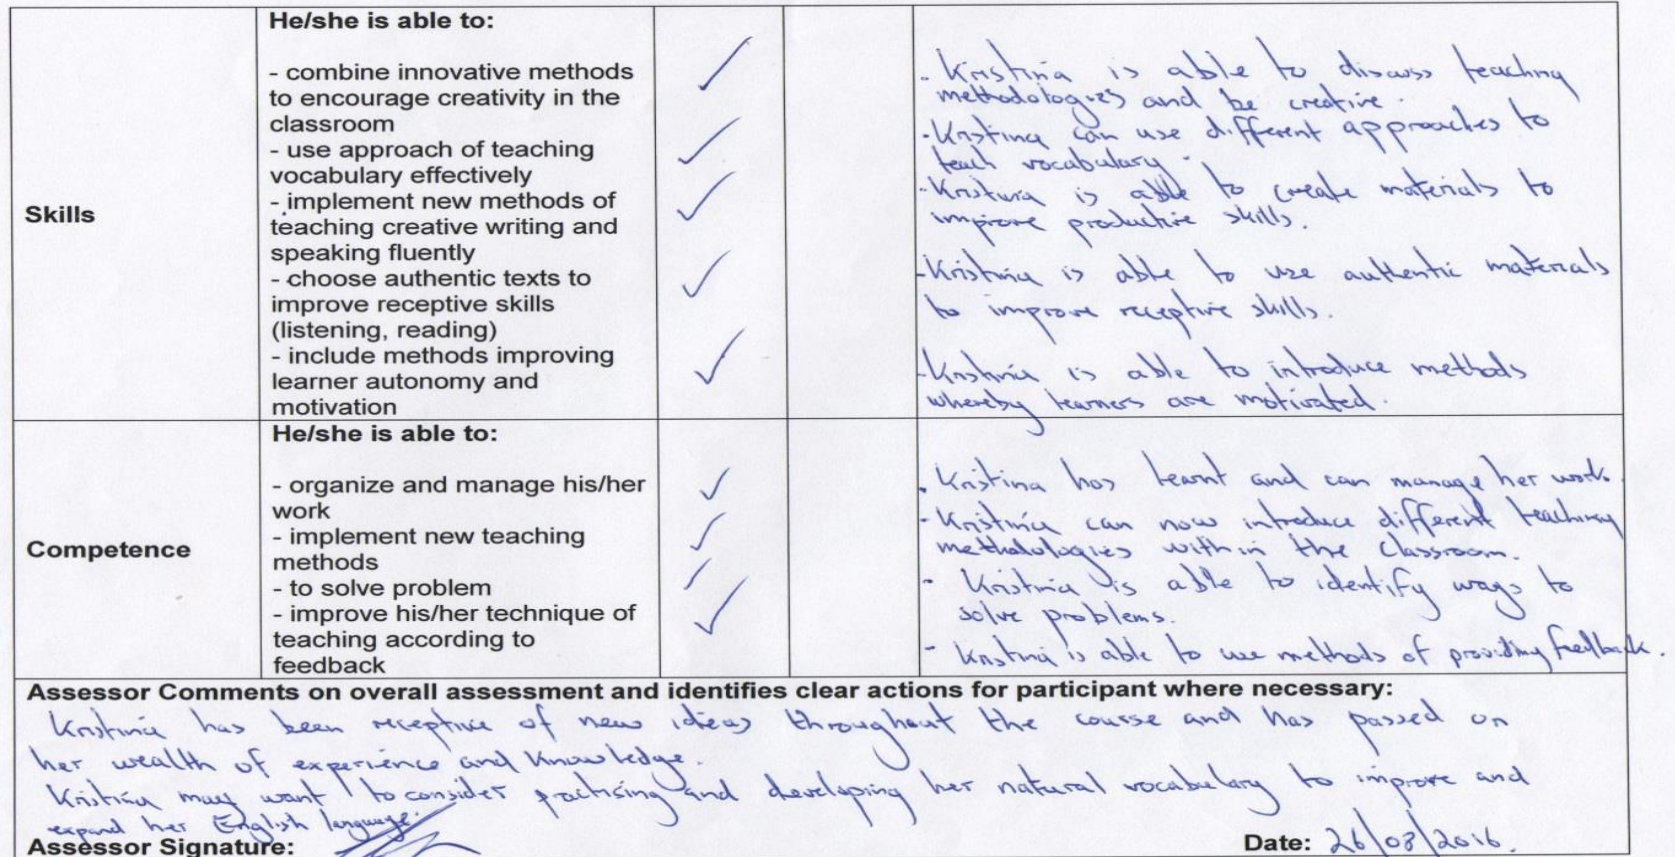 He/she is able to:
- combine innovative methods
to encourage creativity in the
classroom
- use approach of teaching
vocabulary effectively
- implement new methods of
teaching creative writing and
speaking fluently
- choose authentic texts to
improve receptive skills
(listening, reading)
- include methods improving
learner autonomy and
motivation
Skills
- Kristina is able to discuss teaching
methodologies and be creative.
- Kristina can use different approaches to
teach vocabulary.
- Kristina is able to create materials to
improve productive skills.
- Kristina is able to use authentic materials
to improve receptive skills.
- Kristina is able to introduce methods
whereby learners are motivated.
He/she is able to:
- organize and manage his/her
work
- implement new teaching
methods
- to solve problem
- improve his/her technique of
teaching according to
feedback
Competence
- Kristina has learnt and can manage her work.
- Kristina can now introduce different teaching
methodologies within the classroom.
- Kristina is able to identify ways to
solve problems.
- Kristina is able to use methods of providing feedback.
Assessor Comments on overall assessment and identifies clear actions for participant where necessary:
Kristina has been receptive of new ideas throughout the course and has passed on
her wealth of experience and knowledge.
Kristina may want to consider practising and developing her natural vocabulary to improve and
expand her English language.
Assessor Signature:
Date: 26/08/2016.